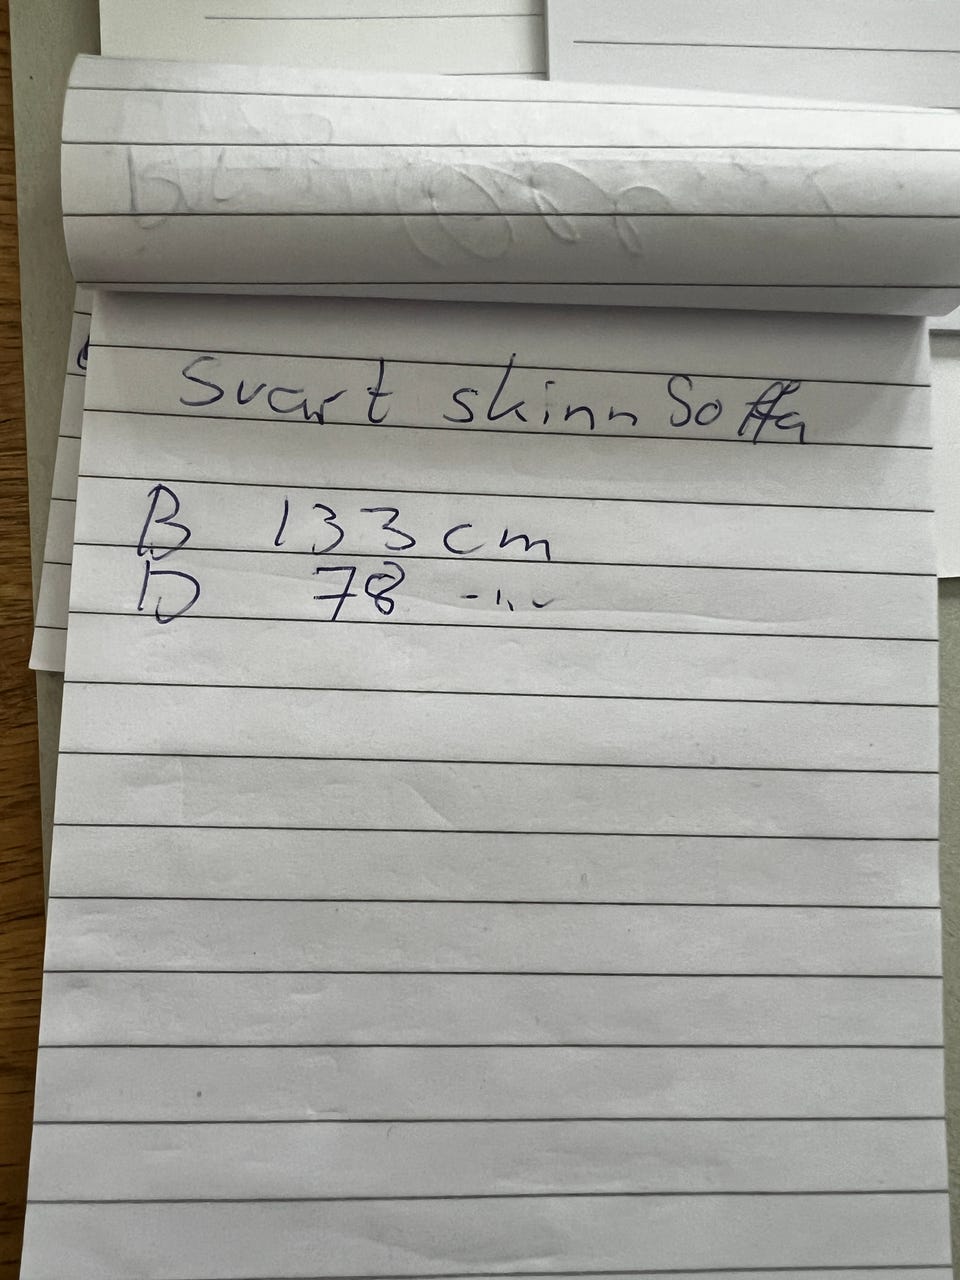 Svart skinn Soffa
B 133 cm
D 78 -"-